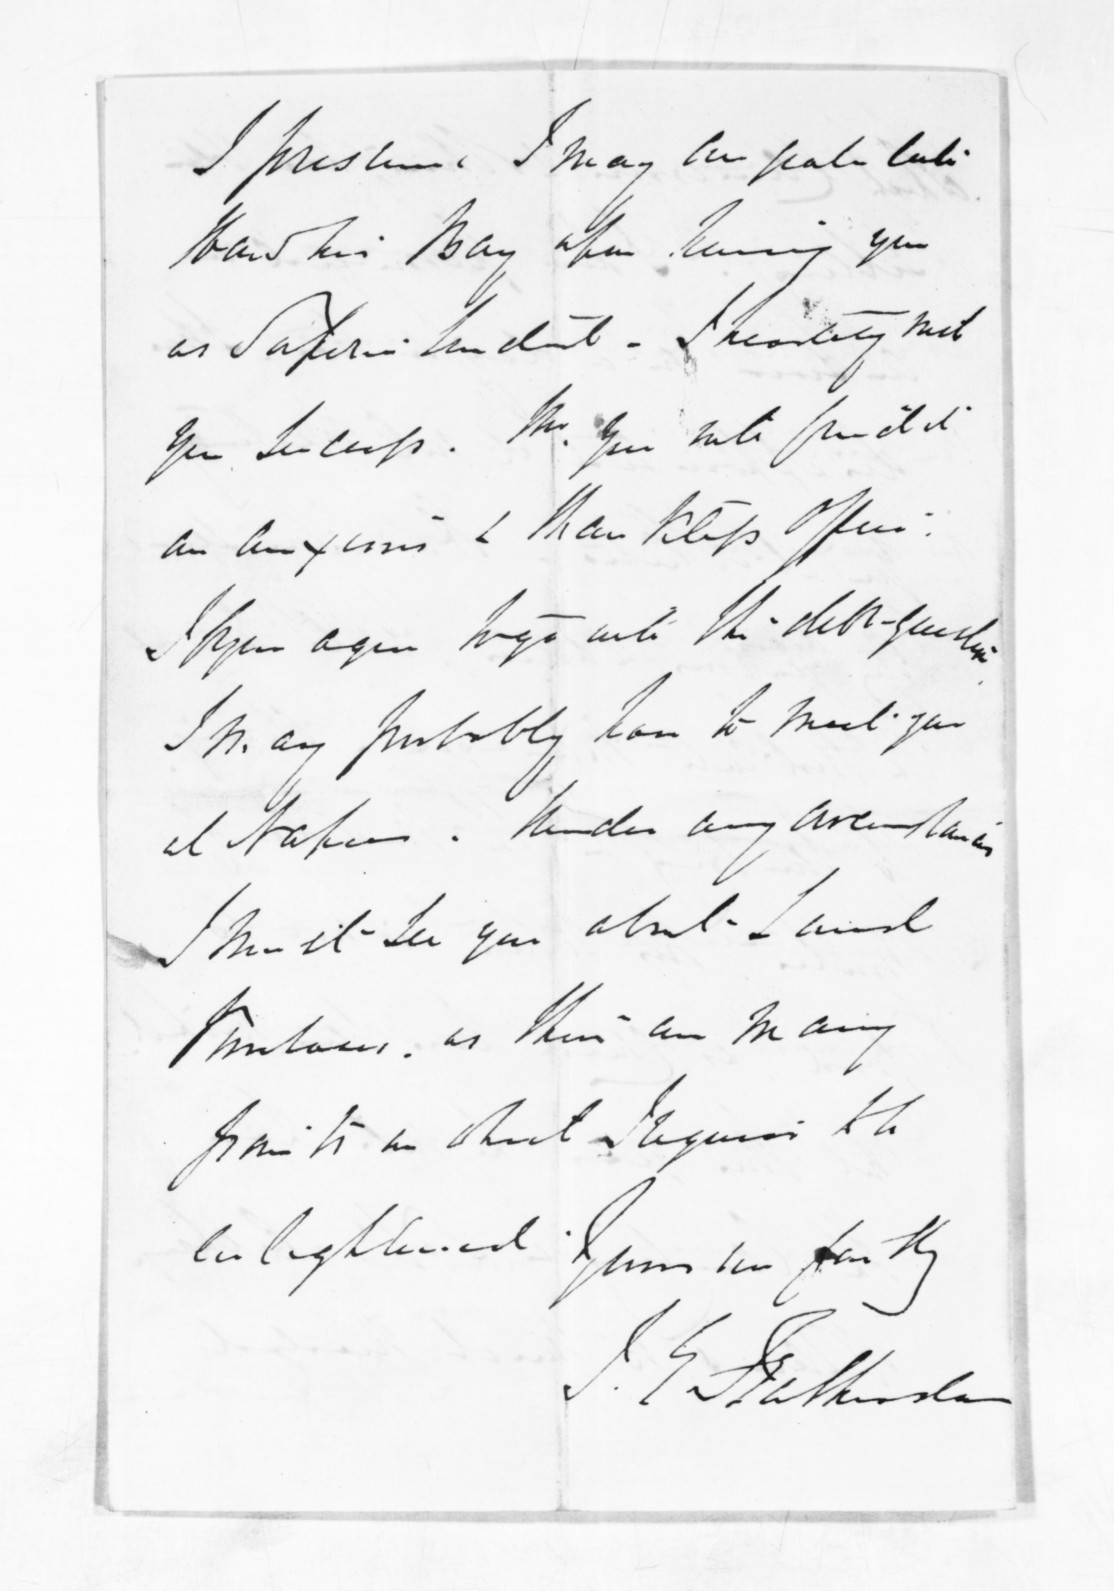 I presume I may congratulate
Hawkes Bay upon having you
as Superintendent - I heartily wish
you success. you will find it
an anxious & thankless office.
If you agree to go into the debt-question
I may probably have to meet you
at Napier. Under any circumstances
I must see you about Land
Purchases. as there are many
points on which I require to be
enlightened. Yours very faithfully
I. E. Featherston